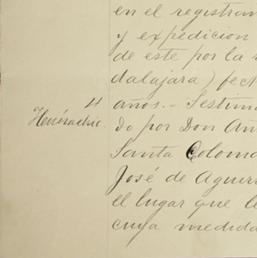 en el registram
y expedicion
de este por la
dalajara) fect
años.- Testim
4
do por Don
Santa Coloma
José de Aguer
el lugar que
cuya medida